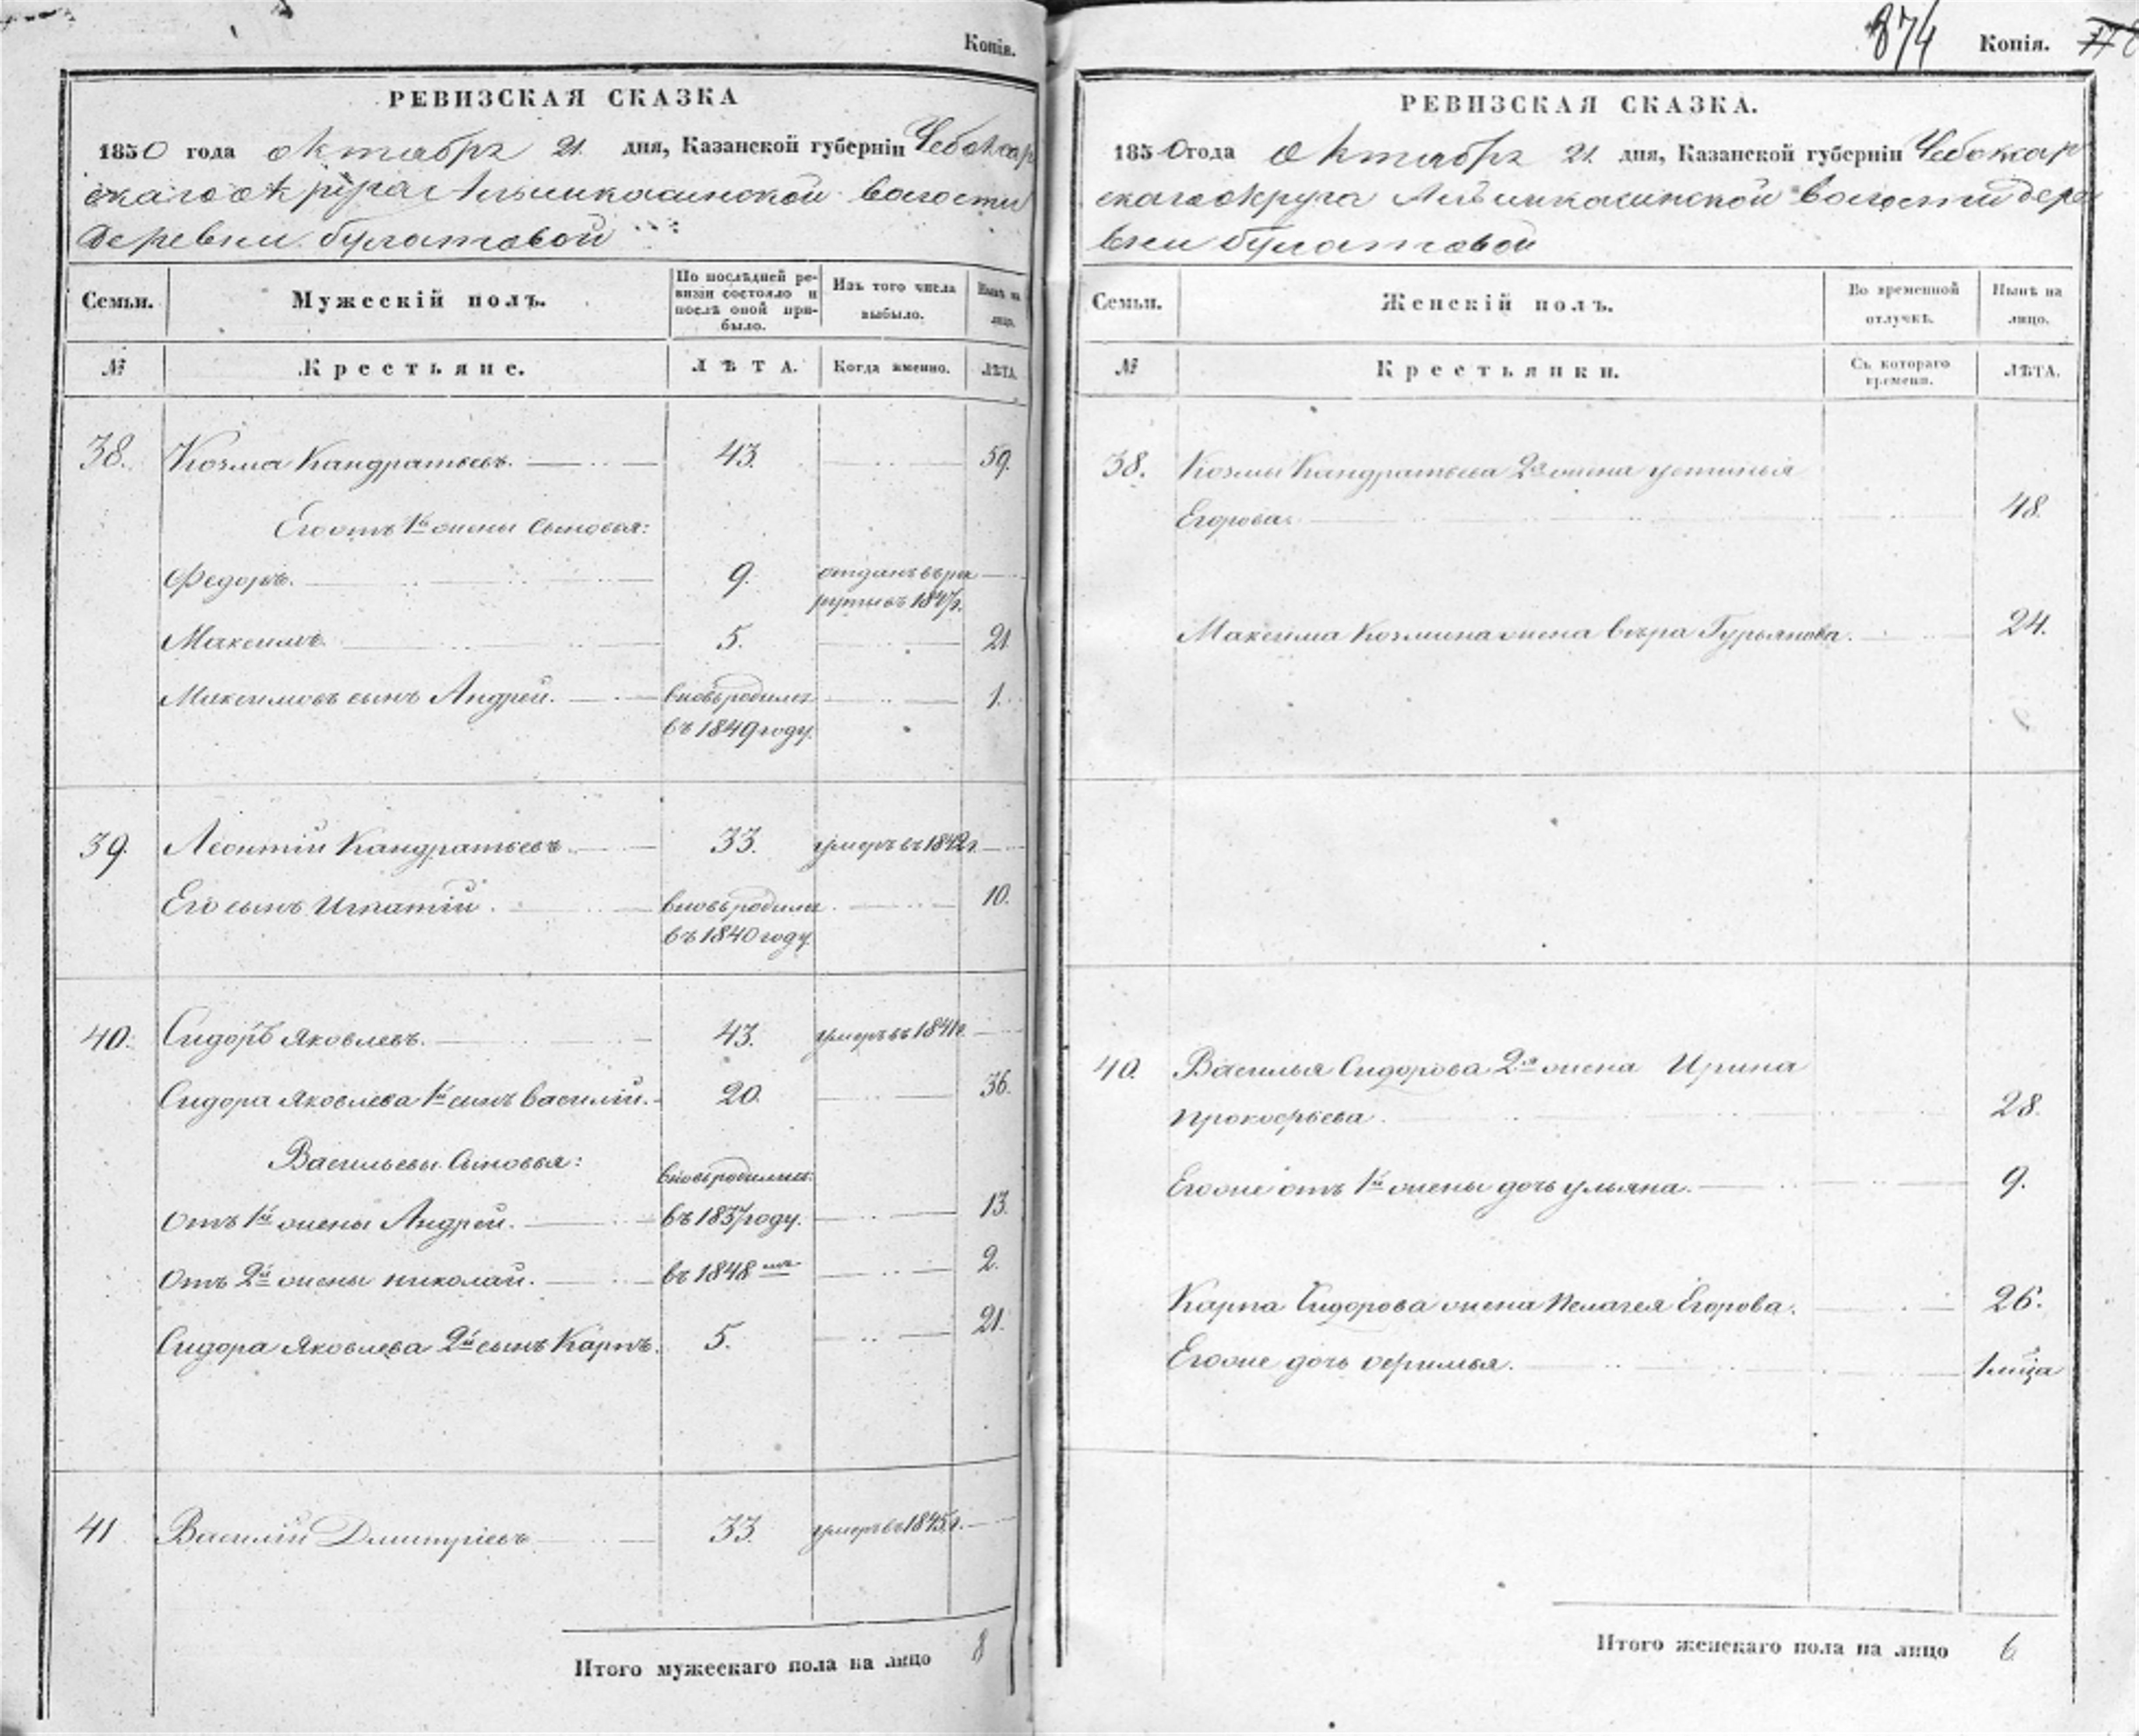 Копія.
РЕВИЗСКАЯ СКАЗКА
1850 года октября 21 дня, Казанской губерніи Чебоксар
скаго округа Алымкасинской волости
деревни булатовой
Семьи.
Мужескій полъ.
По послѣдней ре-
визіи состояло и
послѣ оной при-
было.
Изъ того числа
выбыло.
Нынѣ на
лицо.
№
Крестьяне.
ЛѢТА.
Когда именно.
ЛѢТА.
38. Козма Кандратьевъ. 43. 59.
Его отъ 1й жены сыновья:
Федоръ. 9. отданъ въ рек
руты въ 1847г.
Максимъ 5. 21
Максимовъ сынъ Андрей. вновь родился 1.
въ 1849 году.
39. Леонтій Кандратьевъ 33. умеръ въ 1842г.
Его сынъ Игнатій. вновь родился 10.
въ 1840 году.
40. Сидоръ Яковлевъ. 43. умеръ въ 1841г.
Сидора Яковлева 1й сынъ Василій. 20. 36.
Васильевы сыновья: вновь родились
Отъ 1й жены Андрей. въ 1837 году. 13.
Отъ 2й жены николай. въ 1848мъ 2.
Сидора Яковлева 2й сынъ Карпъ. 5. 21.
41 Василій Дмитріевъ 33. умеръ въ 1845г.
Итого мужескаго пола на лицо 8
874 Копія.
РЕВИЗСКАЯ СКАЗКА.
1850 года Октября 21 дня, Казанской губерніи Чебоксар
скаго округа Алымкасинской волости дере
вни булатовой
Семьи.
Женскій полъ.
Во временной
отлучкѣ.
Нынѣ на
лицо.
№
Крестьянки.
Съ котораго
времени.
ЛѢТА.
38. Козмы Кандратьева 2я жена устинья
Егорова. 48.
Максима Козмина жена вѣра Гурьянова. 24.
40. Василья Сидорова 2я жена Ирина
Прокофьева. 28.
Его же отъ 1й жены дочь ульяна. 9.
Карпа Сидорова жена Пелагея Егорова. 26.
Его же дочь 1 мѣца
Итого женскаго пола на лицо 6